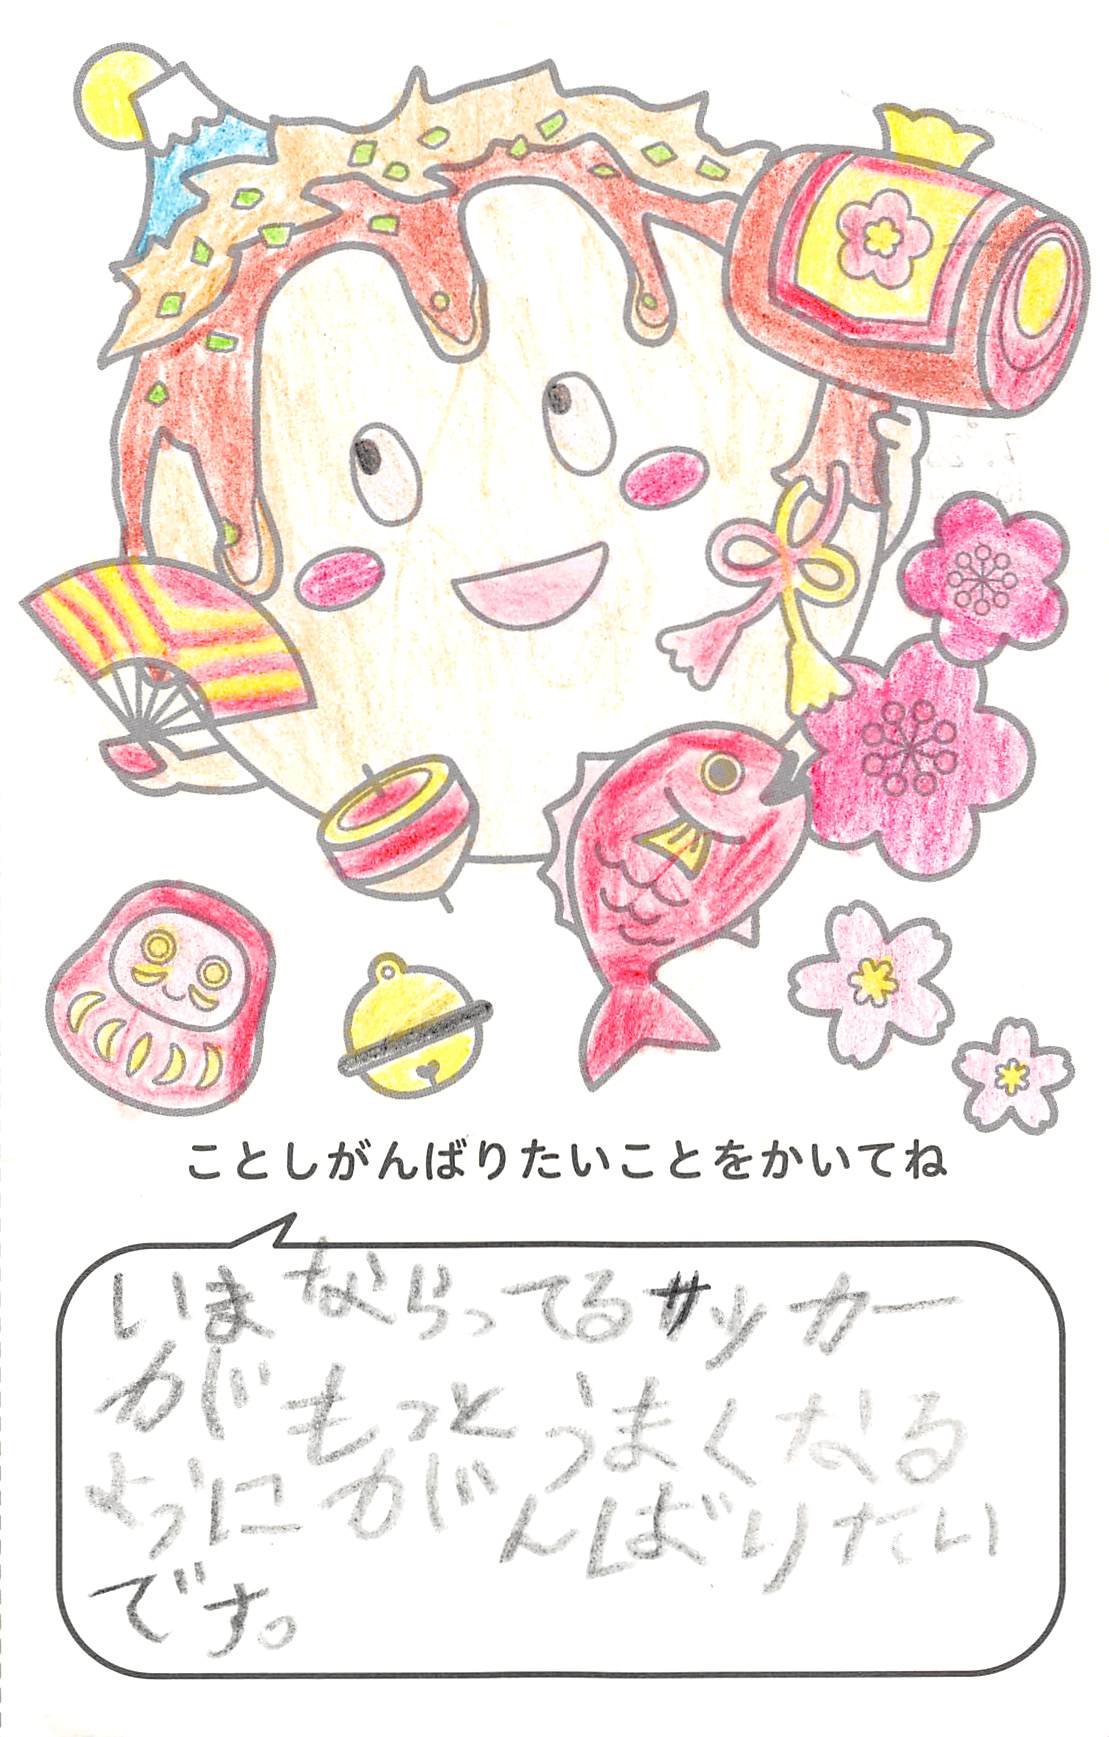 ことしがんばりたいことをかいてね
いまならってるサッカー
がもっとうまくなる
ようにがんばりたい
です。